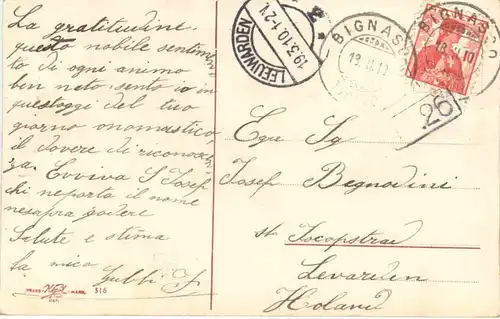 La gratitudine
questo nobile sentimen
to di ogni animo
ben nato sento io in
questoggi del tuo
giorno onomastico,
il dovere di riconoscen
za. Evviva S Josef
chi ne porta il nome
ne sapra godere
Salute e stima
la mica
LEEUWARDEN
19.3.10.1-2V
2
BIGNASCO
BIGNASCO
10
26
Egre Sg
Josep Begnodini
st. Jocopstraat
Levarden
Holand
TRADE
MARK
316